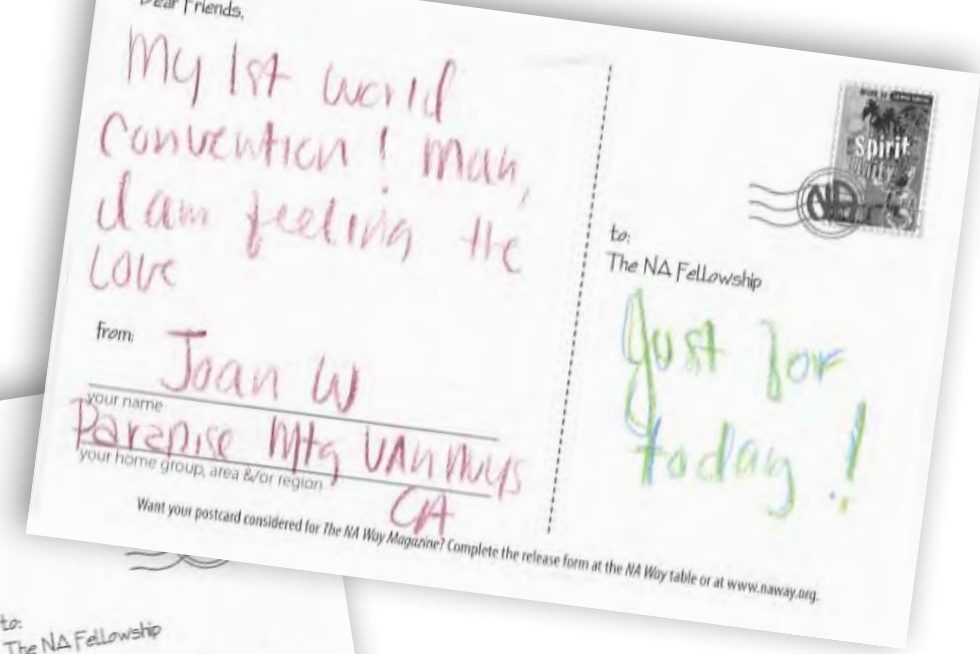 Dear Friends,
My 1st world
Convention! Man,
I am feeling the
Love
from:
Joan W
your name
Paradise Mtg VAn Nuys
CA
your home group, area &/or region
Spirit
Unity
NA
to:
The NA Fellowship
Just for
today!
Want your postcard considered for The NA Way Magazine? Complete the release form at the NA Way table or at www.naway.org.
to:
The NA Fellowship